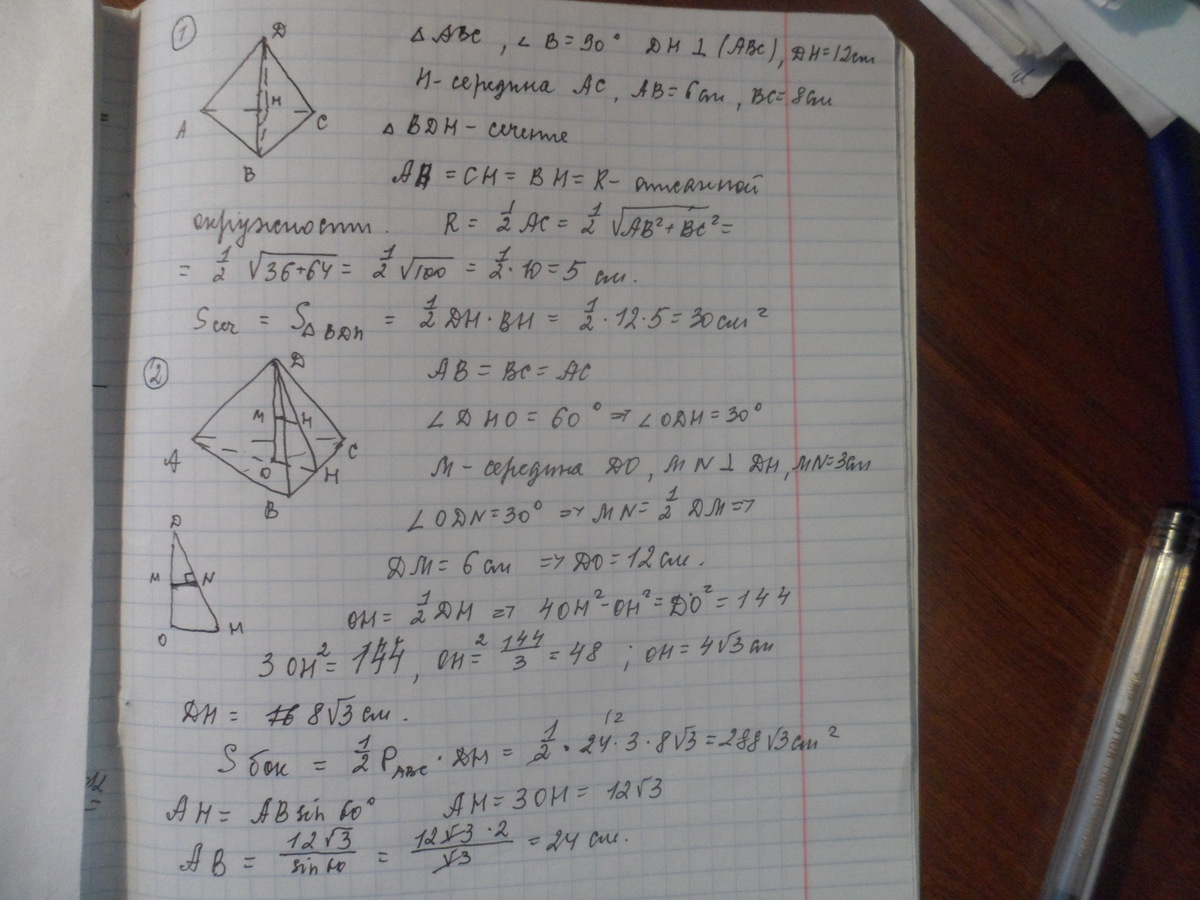 ① △ABC, ∠B=90° DH⊥(ABC), DH=12см
D
H
A
C
B
H- середина AC, AB=6см, BC=8см
△BDH- сечение
AH = CH = BH = R- описанной
окружности. R = 1/2 AC = 1/2 √(AB²+BC²) =
= 1/2 √(36+64) = 1/2 √100 = 1/2 · 10 = 5 см.
Sсеч = S△BDH = 1/2 DH · BH = 1/2 · 12 · 5 = 30 см²
② AB = BC = AC
D
M
H
A
C
O
H
B
∠DHO = 60° ⇒ ∠ODH = 30°
M- середина DO, MN⊥DH, MN=3см
∠ODN=30° ⇒ MN= 1/2 DM ⇒
D
M
N
O
H
DM = 6 см ⇒ DO = 12 см.
OH = 1/2 DH ⇒ 4OH²-OH² = DO² = 144
3OH² = 144, OH² = 144/3 = 48 ; OH = 4√3 см
DH = 8√3 см.
12
Sбок = 1/2 P_ABC · DH = 1/2 · 24 · 3 · 8√3 = 288√3 см²
AH = AB sin 60° AH = 3OH = 12√3
AB = 12√3/sin60 = 12√3·2/√3 = 24 см.